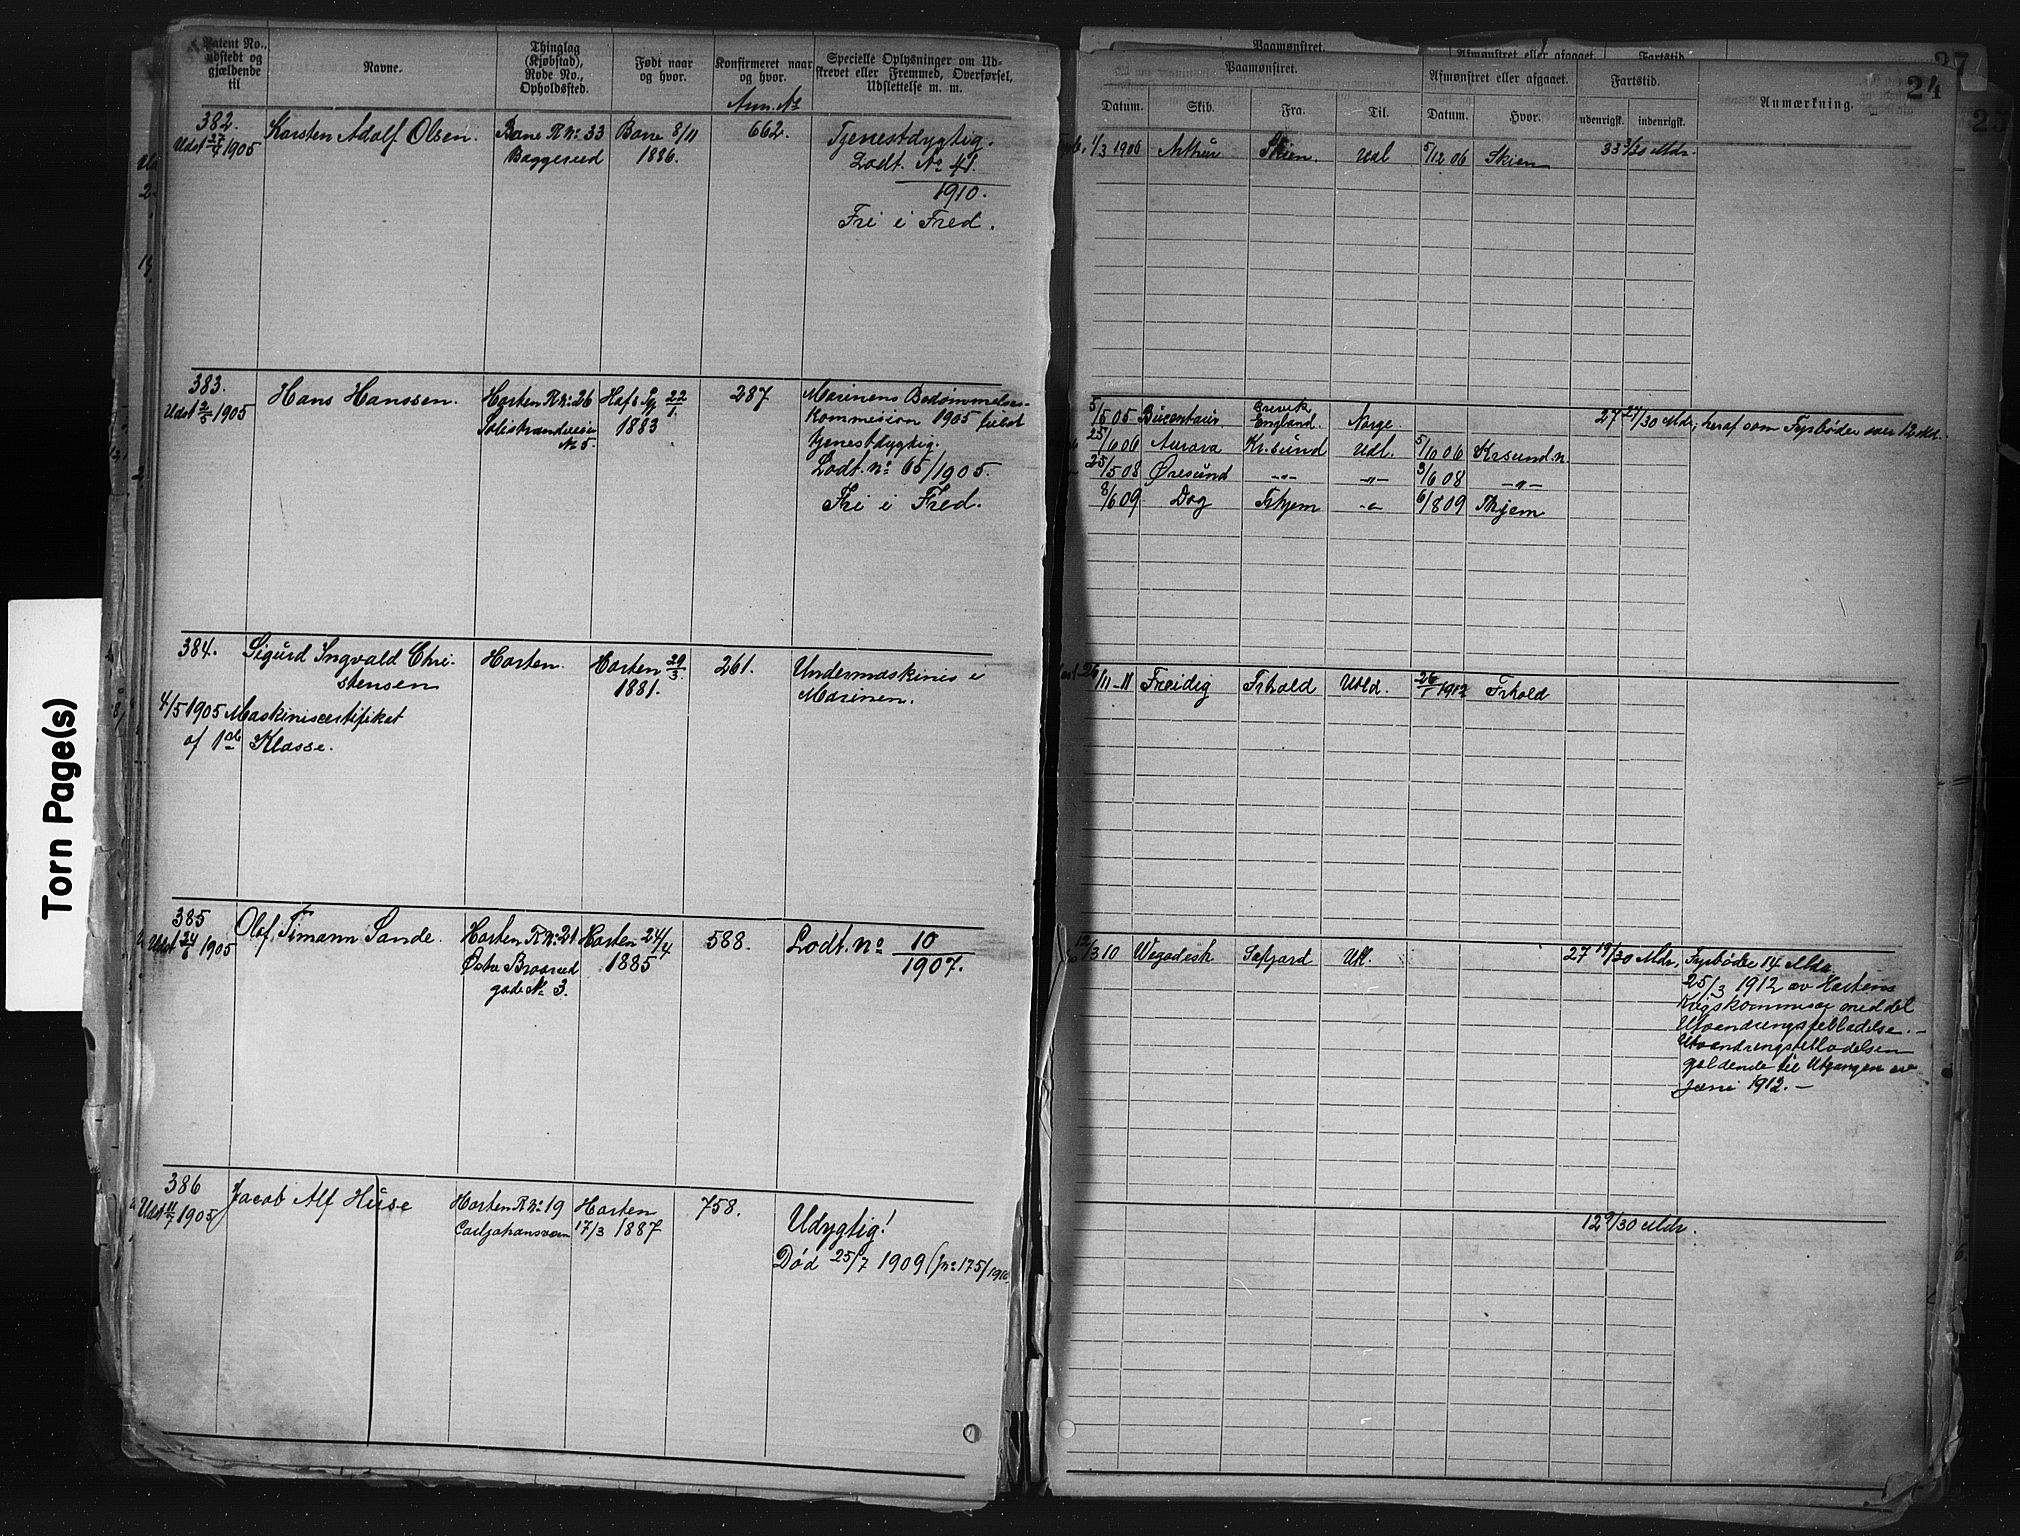 Patent No., udstedt og gjældende til
Navne.
Thinglag (Kjøbstad), Rode No., Opholdssted.
Født naar og hvor.
Konfirmeret naar og hvor.
Ann. No
Specielle Oplysninger om Udskrevet eller Fremmed, Overførsel, Udslettelse m. m.
Paamønstret.
Afmønstret eller afgaaet.
Fartstid.
27
Paamønstret.
Afmønstret eller afgaaet.
Fartstid.
Anmærkning.
24
Datum.
Skib.
Fra.
Til.
Datum.
Hvor.
udenrigsk.
indenrigsk.
382.
Karsten Adolf Olsen.
Borre R No 33
Baggerød
Borre 8/11
1886.
662.
Tjenestdygtig.
Lodt. No 41.
1910.
Fri i Fred.
1/3 1906
Arthur
Skien.
Udl
5/12 06
Skien
33 3/30 Mdr.
383.
Udst 2/5 1905
Hans Hanssen.
Horten R No 26
No 5.
22/1.
1883
287
Marinens Bedømmelses-
Kommision 1905 fuldt
tjenestdygtig.
Lodt. no 65/1905.
Fri i Fred.
England.
Norge.
27 Mdr, heraf som Fyrbøder over 12 Mdr.
25/6 06
Aurora
Kr.sund
Udl.
5/10 06
Krsund.n.
25/5 08
Øresund
-"-
-"-
3/6 08
-"-
8/6 09
Dag
Trhjem
-"-
6/8 09
Thjem
384.
Sigurd Ingvald Chri-
stensen
Horten.
Horten 29/3
1881.
261.
Undermaskinis i
Marinen.
4/5 1905 Maskiniscertifikat
af 1ste Klasse.
26/11 - 11
Freidig
Frhald
Utld.
26/1 1912
Frhald
385
Udst 24/6 1905
Olaf Timann Sande.
Horten R No 21
Østre Braarud
gade No 3.
Horten 24/4
1885
588.
Lodt. no 10/1907.
12/3 10
Utl.
27 19/30 Mdr.
Fyrbøder 14 Mdr.
25/3 1912 av Hortens
Krigskommisær meddel
Utvandringstilladelse. -
Utvandringstilladelsen
gældende til Utgangen av
Juni 1912. -
386
Udst 11/7 1905
Jacob Alf Huse
Horten R No 19
Carljohansværn
Horten
17/3 1887
758.
Udygtig!
Død 25/7 1909 (jno 175/1910.
12 9/30 Mdr.
Torn Page(s)